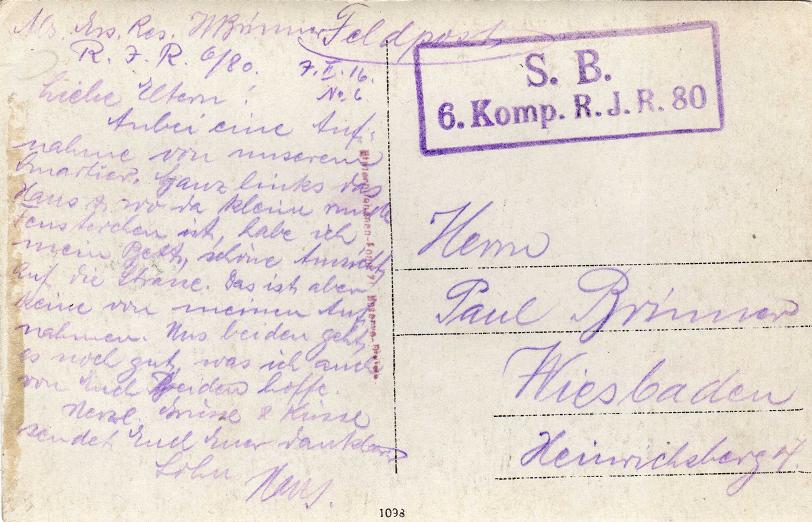 Abs. Ers. Res. H Brinner Feldpost
R. J. R. 6/80. 7. II. 16.
No. 6
Liebe Eltern!
Anbei eine Auf-
nahme von unserem
Quartier. Ganz links das
Haus, wo da kleine runde
Fensterchen ist, habe ich
mein Bett, schöne Aussicht
auf die Strasse. Das ist aber
keine von meinen Auf-
nahmen. Uns beiden geht
es noch gut, was ich auch
von Euch Beiden hoffe.
Herzl. Grüsse & Küsse
sendet Euch Euer dankbarer
Sohn Hans.
S. B.
6. Komp. R. J. R. 80
Herrn
Paul Brinner
Wiesbaden
Heinrichsberg 4
1098